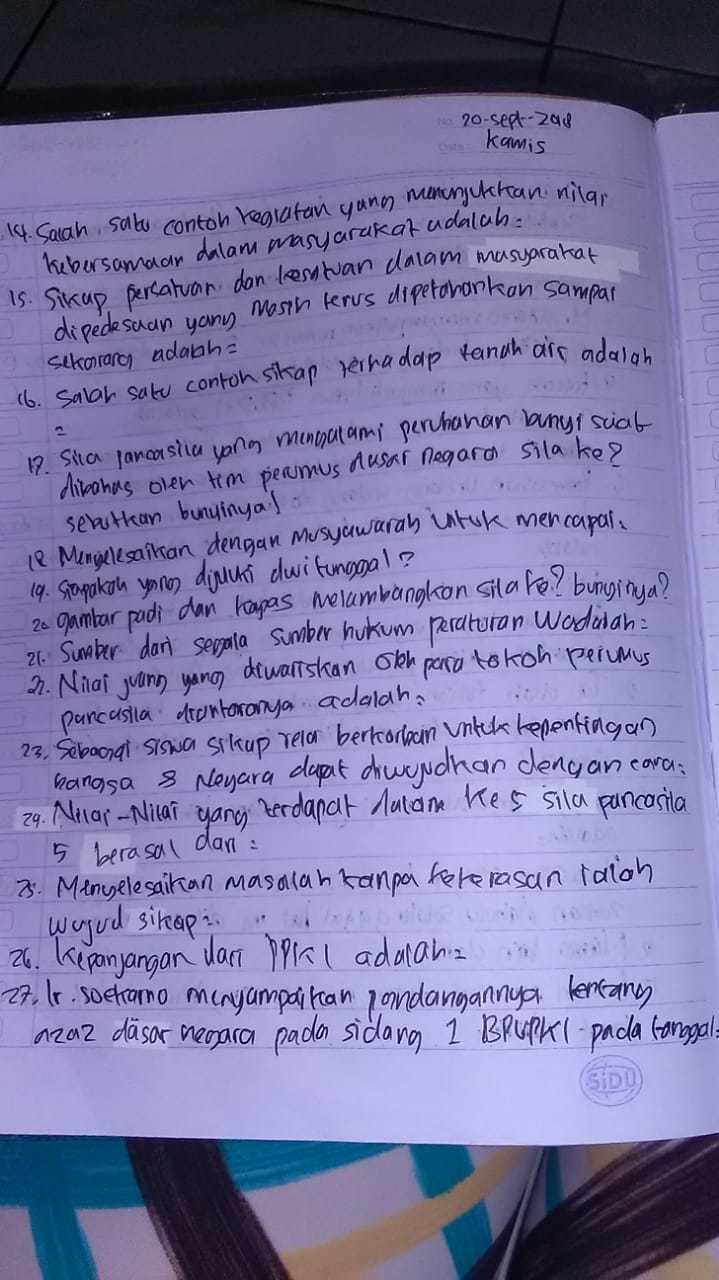 20-sept-2018
kamis
14. Salah satu contoh kegiatan yang menunjukkan nilai
kebersamaan dalam masyarakat adalah =
15. Sikap persatuan dan kesatuan dalam masyarakat
dipedesaan yang masih terus dipertahankan sampai
sekarang adalah =
16. Salah satu contoh sikap terhadap tanah air adalah
=
17. Sila pancasila yang mengalami perubahan bunyi saat
dibahas oleh tim perumus dasar negara sila ke?
sebutkan bunyinya!
18 Menyelesaikan dengan musyawarah untuk mencapai =
19. Siapakah yang dijuluki dwitunggal?
20 gambar padi dan kapas melambangkan sila ke? bunyinya?
21. Sumber dari segala sumber hukum peraturan adalah =
22. Nilai juang yang diwariskan oleh para tokoh perumus
pancasila diantaranya adalah =
23. Sebagai siswa sikap rela berkorban untuk kepentingan
bangsa & Negara dapat diwujudkan dengan cara =
24. Nilai-Nilai yang terdapat dalam ke 5 sila pancasila
5 berasal dari =
25. Menyelesaikan masalah tanpa kekerasan ialah
wujud sikap =
26. Kepanjangan dari PPKI adalah =
27. Ir. soekarno menyampaikan pandangannya tentang
azaz dasar negara pada sidang 1 BPUPKI pada tanggal =
SiDU